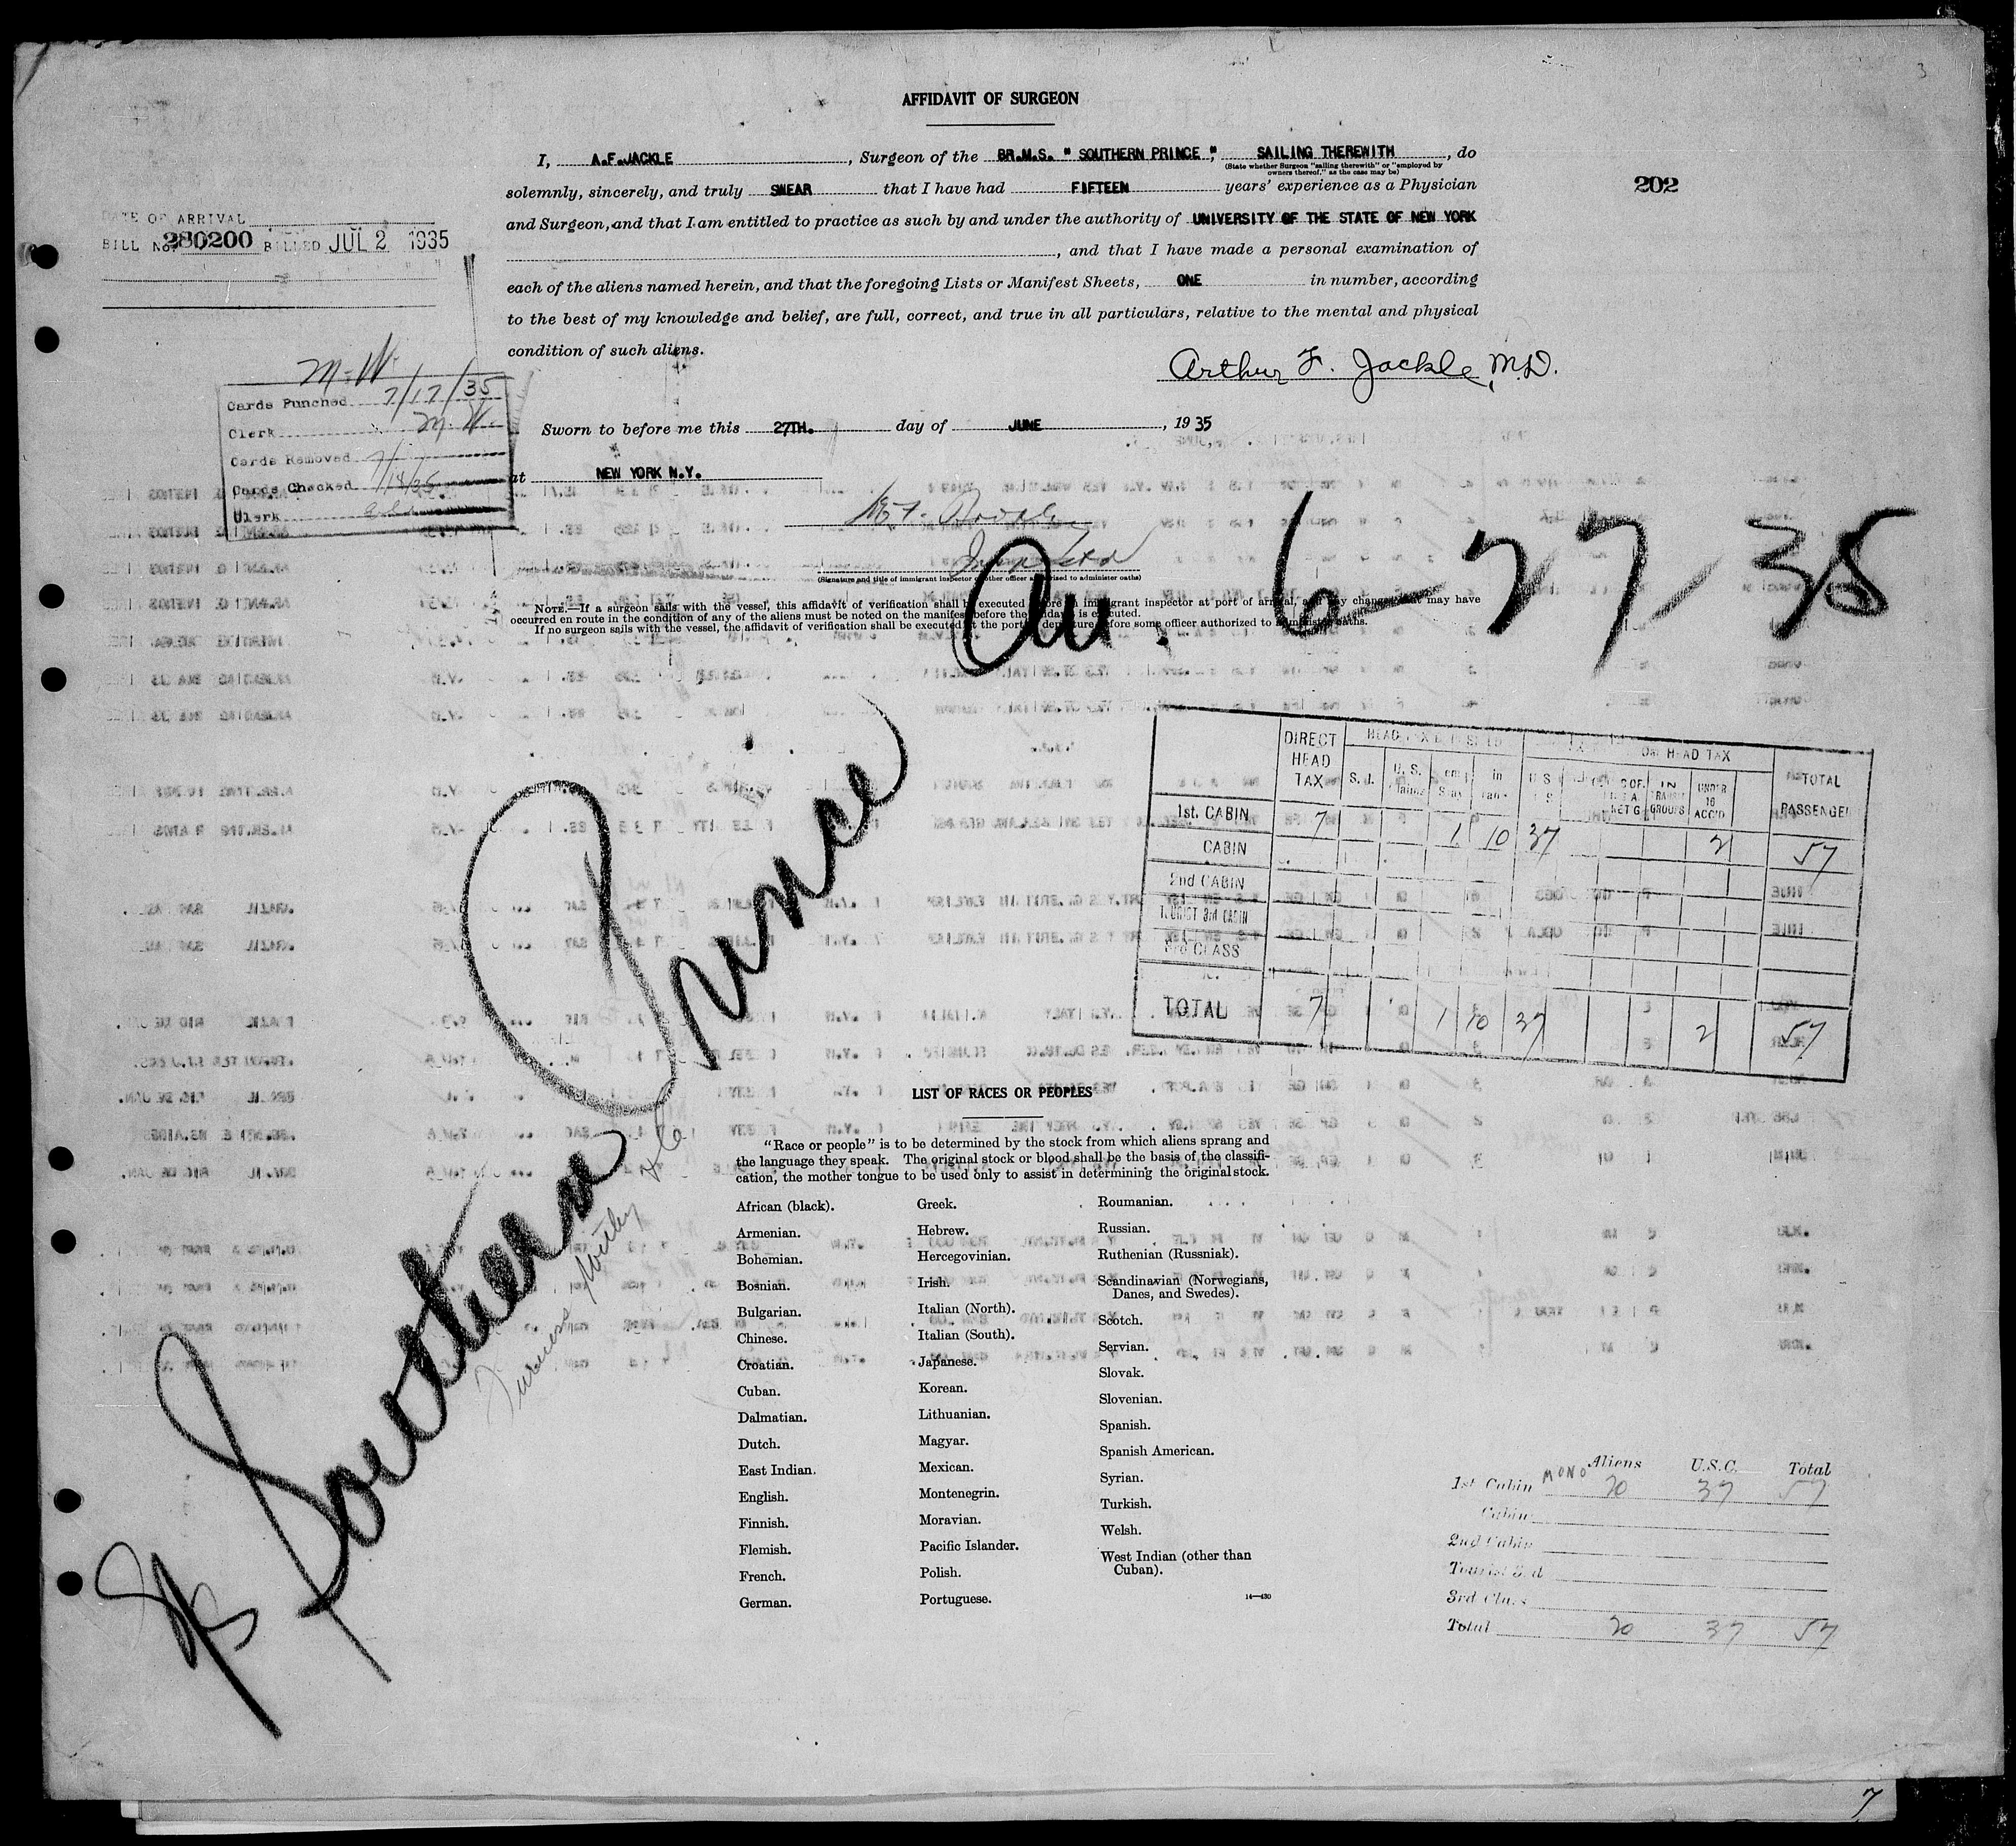 3
AFFIDAVIT OF SURGEON
I, A.F.JACKLE, Surgeon of the BR.M.S. " SOUTHERN PRINCE", SAILING THEREWITH, do
(State whether Surgeon "sailing therewith" or "employed by
owners thereof," as the case may be)
solemnly, sincerely, and truly SWEAR that I have had FIFTEEN years' experience as a Physician
202
and Surgeon, and that I am entitled to practice as such by and under the authority of UNIVERSITY OF THE STATE OF NEW YORK
, and that I have made a personal examination of
each of the aliens named herein, and that the foregoing Lists or Manifest Sheets, ONE in number, according
to the best of my knowledge and belief, are full, correct, and true in all particulars, relative to the mental and physical
condition of such aliens.
Arthur F. Jackle, M.D.
DATE OF ARRIVAL
BILL No. 280200 BILLED JUL 2 1935
M.W.
Cards Punched 7/17/35
Clerk M.W.
Cards Removed
Cards Checked 7/18/35
Clerk
Sworn to before me this 27TH. day of JUNE, 1935
at NEW YORK N.Y.
Inspector
(Signature and title of immigrant inspector or other officer authorised to administer oaths)
NOTE.—If a surgeon sails with the vessel, this affidavit of verification shall be executed before an immigrant inspector at port of arrival, and any changes that may have
occurred en route in the condition of any of the aliens must be noted on the manifest before the affidavit is executed.
If no surgeon sails with the vessel, the affidavit of verification shall be executed at the port of departure before some officer authorized to administer oaths.
Arr. 6-27-35
SS Southern Prince
Furness Withy
DIRECT HEAD TAX
S. J.
IN TRANSIT GROUPS
UNDER 16 ACC'D
TOTAL PASSENGER
1st. CABIN 7 1 10 37 2 57
CABIN
2nd CABIN
TOURIST 3rd CABIN
3rd CLASS
TOTAL 7 1 10 37 2 57
LIST OF RACES OR PEOPLES
"Race or people" is to be determined by the stock from which aliens sprang and
the language they speak. The original stock or blood shall be the basis of the classifi-
cation, the mother tongue to be used only to assist in determining the original stock.
African (black).
Armenian.
Bohemian.
Bosnian.
Bulgarian.
Chinese.
Croatian.
Cuban.
Dalmatian.
Dutch.
East Indian.
English.
Finnish.
Flemish.
French.
German.
Greek.
Hebrew.
Hercegovinian.
Irish.
Italian (North).
Italian (South).
Japanese.
Korean.
Lithuanian.
Magyar.
Mexican.
Montenegrin.
Moravian.
Pacific Islander.
Polish.
Portuguese.
Roumanian.
Russian.
Ruthenian (Russniak).
Scandinavian (Norwegians,
Danes, and Swedes).
Scotch.
Servian.
Slovak.
Slovenian.
Spanish.
Spanish American.
Syrian.
Turkish.
Welsh.
West Indian (other than
Cuban).
14—430
Aliens U.S.C. Total
1st Cabin MONO 20 37 57
Cabin
2nd Cabin
Tourist 3rd
3rd Class
Total 20 37 57
7